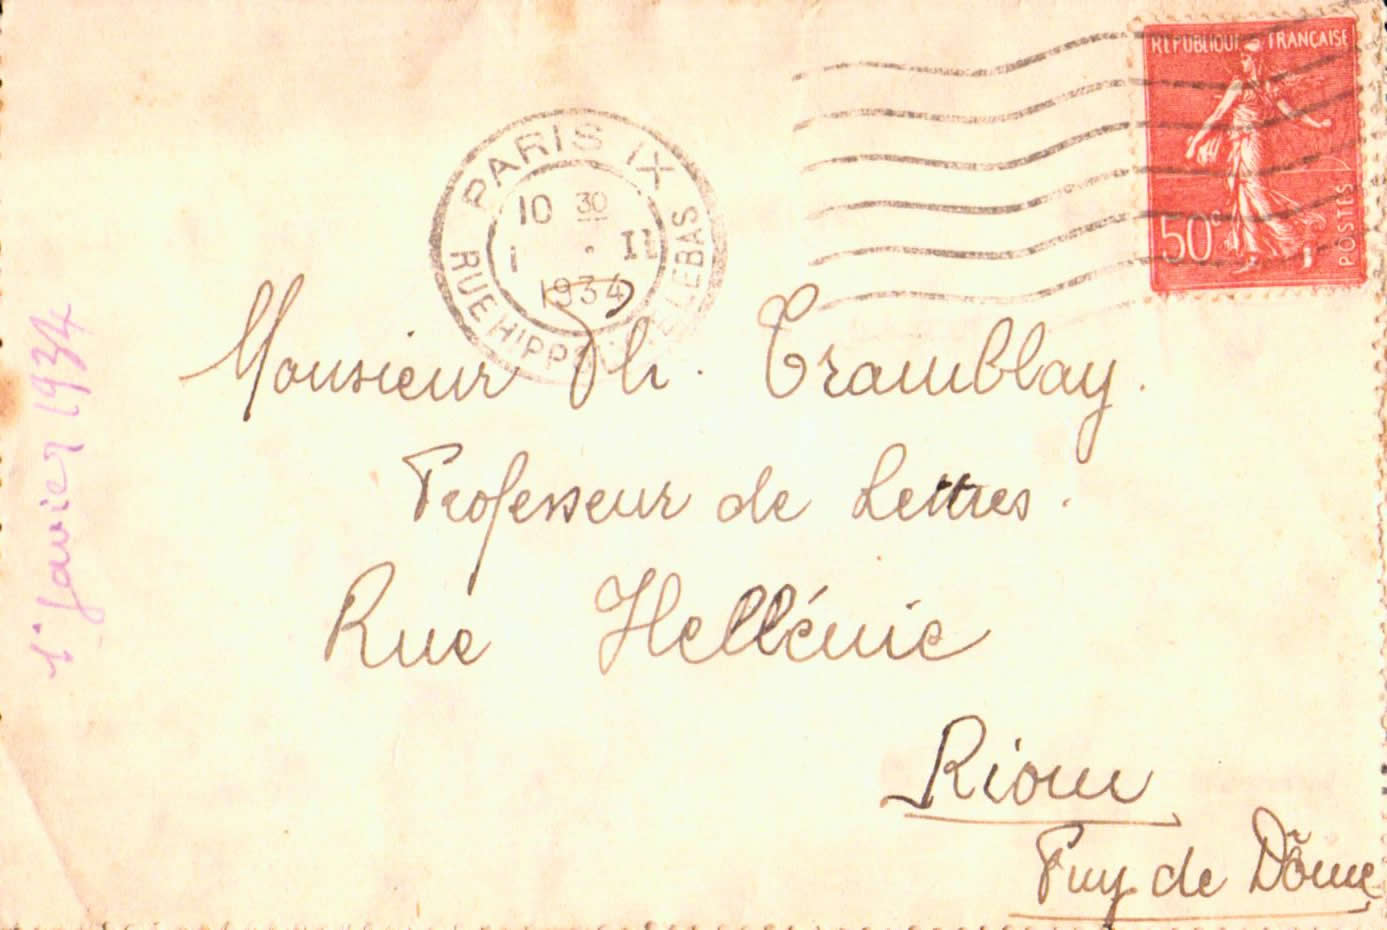 RÉPUBLIQUE FRANÇAISE
50c POSTES
PARIS IX
10 30
1 · II
1934
RUE HIPP LEBAS
Monsieur Th. Tramblay.
Professeur de Lettres.
Rue Hellénie
Riom
Puy de Dôme
1er Janvier 1934